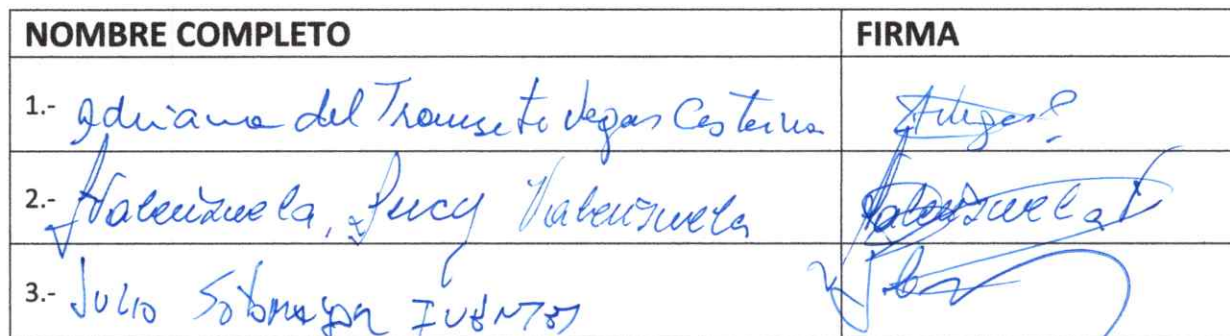 NOMBRE COMPLETO FIRMA
1.- Adriana del Transito Vegas
2.- Valenzuela, Lucy Valenzuela Valenzuela
3.- Julio Sotomayor